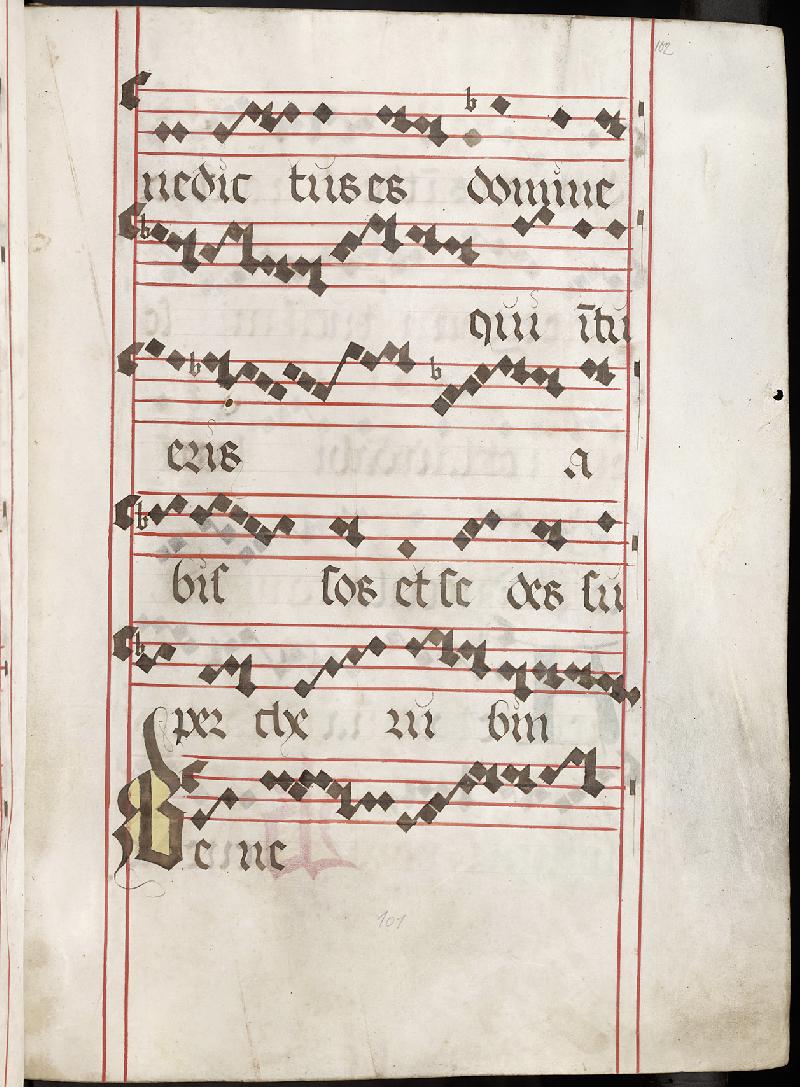 102
nedic tus es domine
qui ītu
eris a
bis sos et se des su
per che ru bin
Bene
101